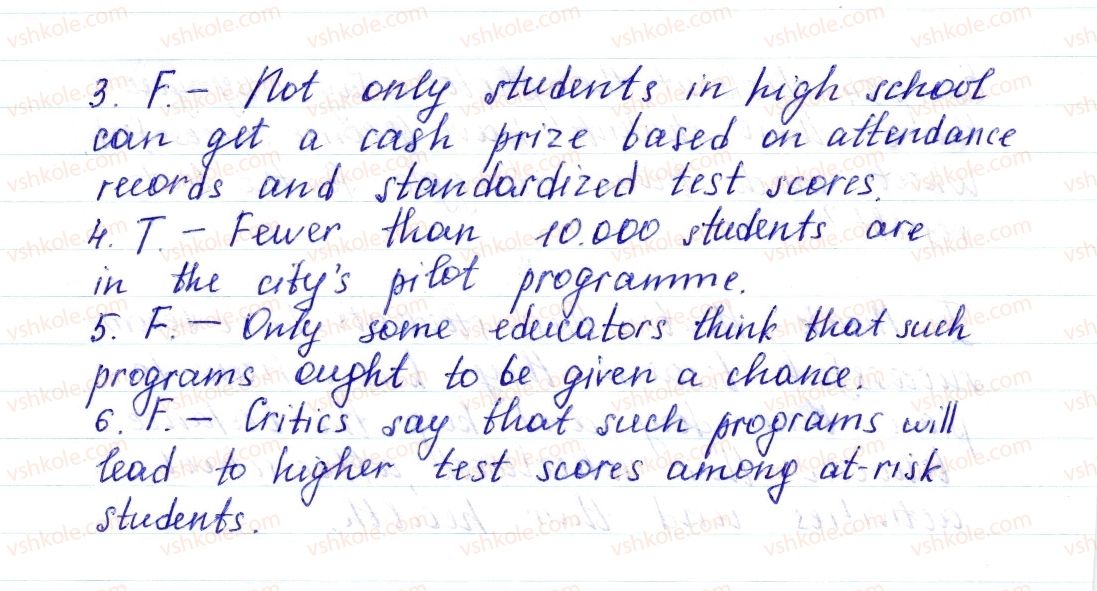 3. F. – Not only students in high school
can get a cash prize based on attendance
records and standardized test scores.
4. T. – Fewer than 10.000 students are
in the city's pilot programme.
5. F. – Only some educators think that such
programs ought to be given a chance.
6. F. – Critics say that such programs will
lead to higher test scores among at-risk
students.